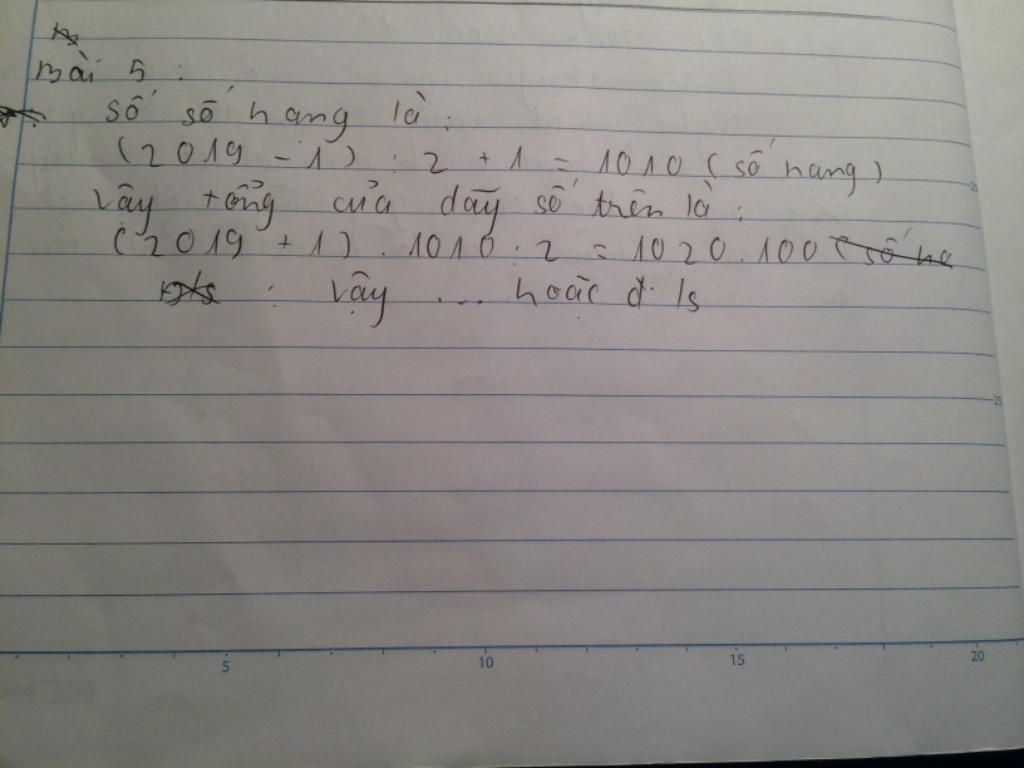 Bài 5 :
số số hạng là :
(2019 - 1) : 2 + 1 = 1010 (số hang)
Vậy tổng của dãy số trên là :
(2019 + 1) . 1010 : 2 = 1020.100 (số hạ
: Vậy ... hoặc đ. ls
5 10 15 20
25